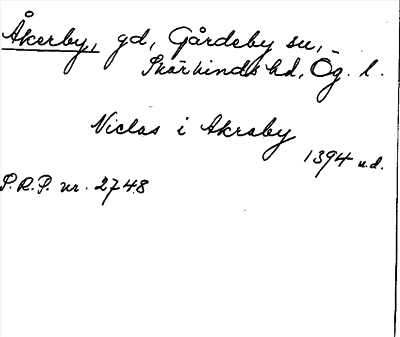 Åkerby, gd, Gårdeby sn,
Skärkinds hd, Ög. l.
Niclas i Akraby
1394 u.d.
S.R.P. nr. 2748